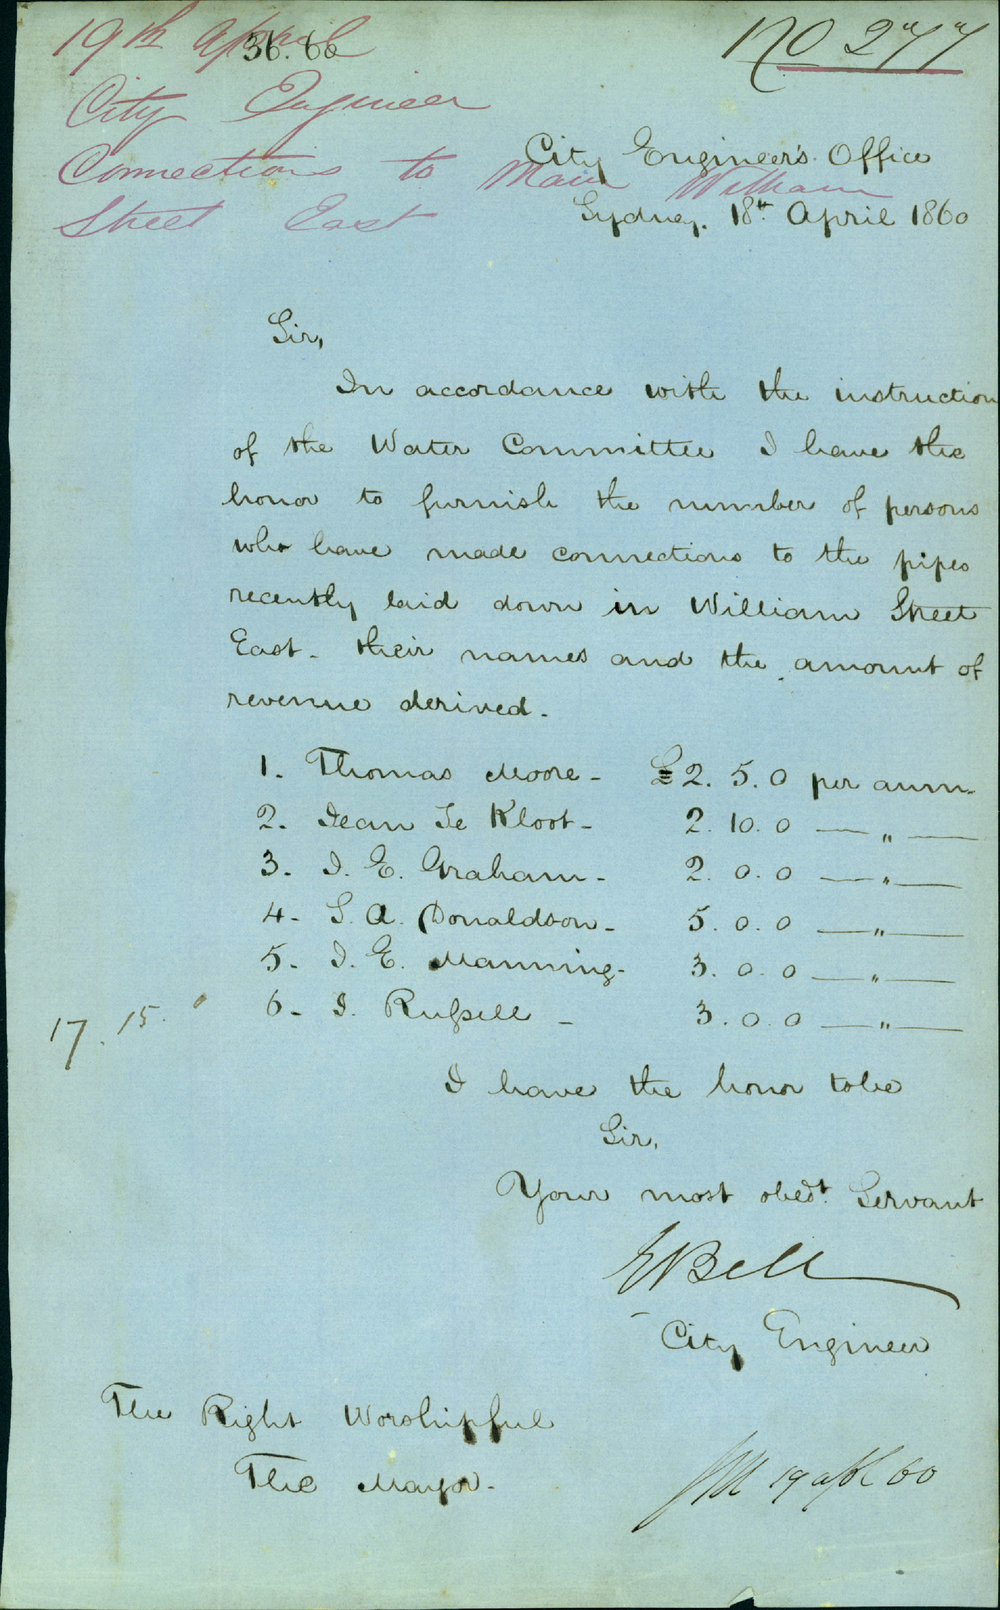 19th April
36.60
No 277
City Engineer
Connections to Main William
Street East
City Engineer's Office
Sydney. 18th April 1860
Sir,
In accordance with the instruction
of the Water Committee I have the
honor to furnish the number of persons
who have made connections to the pipes
recently laid down in William Street
East - their names and the amount of
revenue derived -
1 - Thomas Moore - £2. 5. 0 per ann.
2 - Jean Le Kloot - 2. 10. 0 — " —
3 - J. E. Graham - 2. 0. 0 — " —
4 - S. A. Donaldson - 5. 0. 0 — " —
5 - J. E. Manning - 3. 0. 0 — " —
6 - J. Russell - 3. 0. 0 — " —
17. 15.
I have the honor to be
Sir,
Your most obedt. Servant
E Bell
City Engineer
The Right Worshipful
The Mayor -
19 apl 60